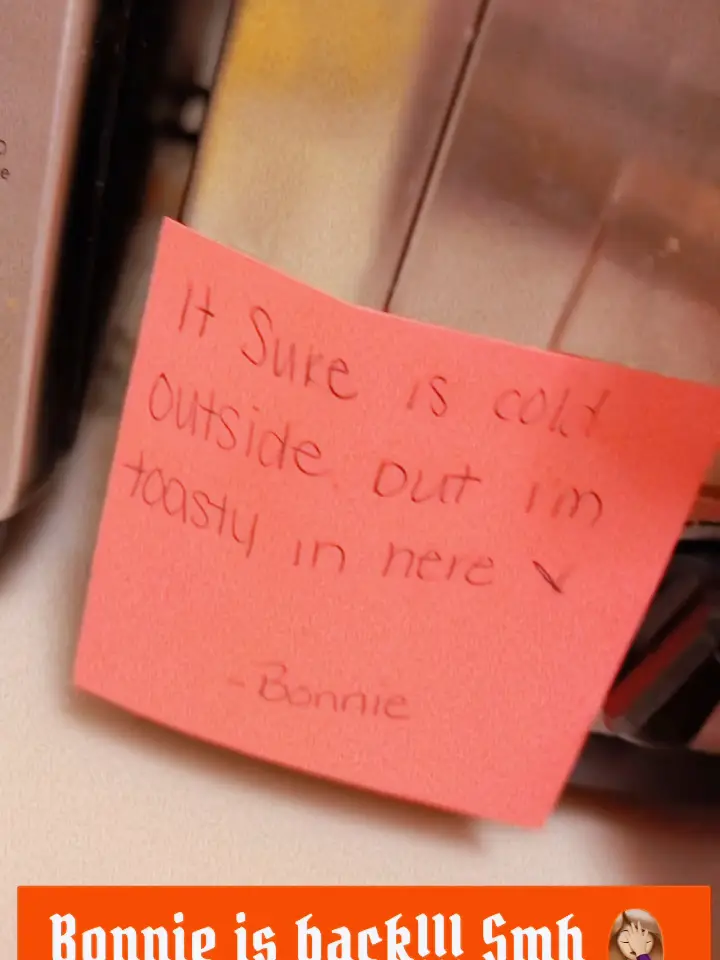 It Sure is cold
outside but im
toasty in here
-Bonnie
Bonnie is back!!! Smh 🤦🏼‍♀️